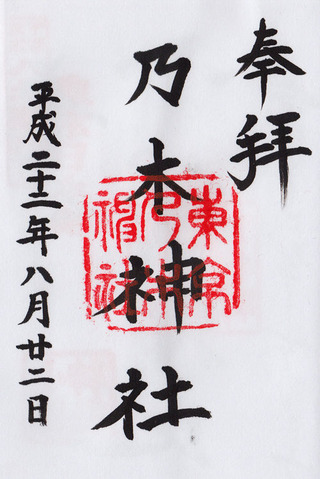 奉拝
乃木神社
東京
乃木
神社
平成二十二年八月廿二日